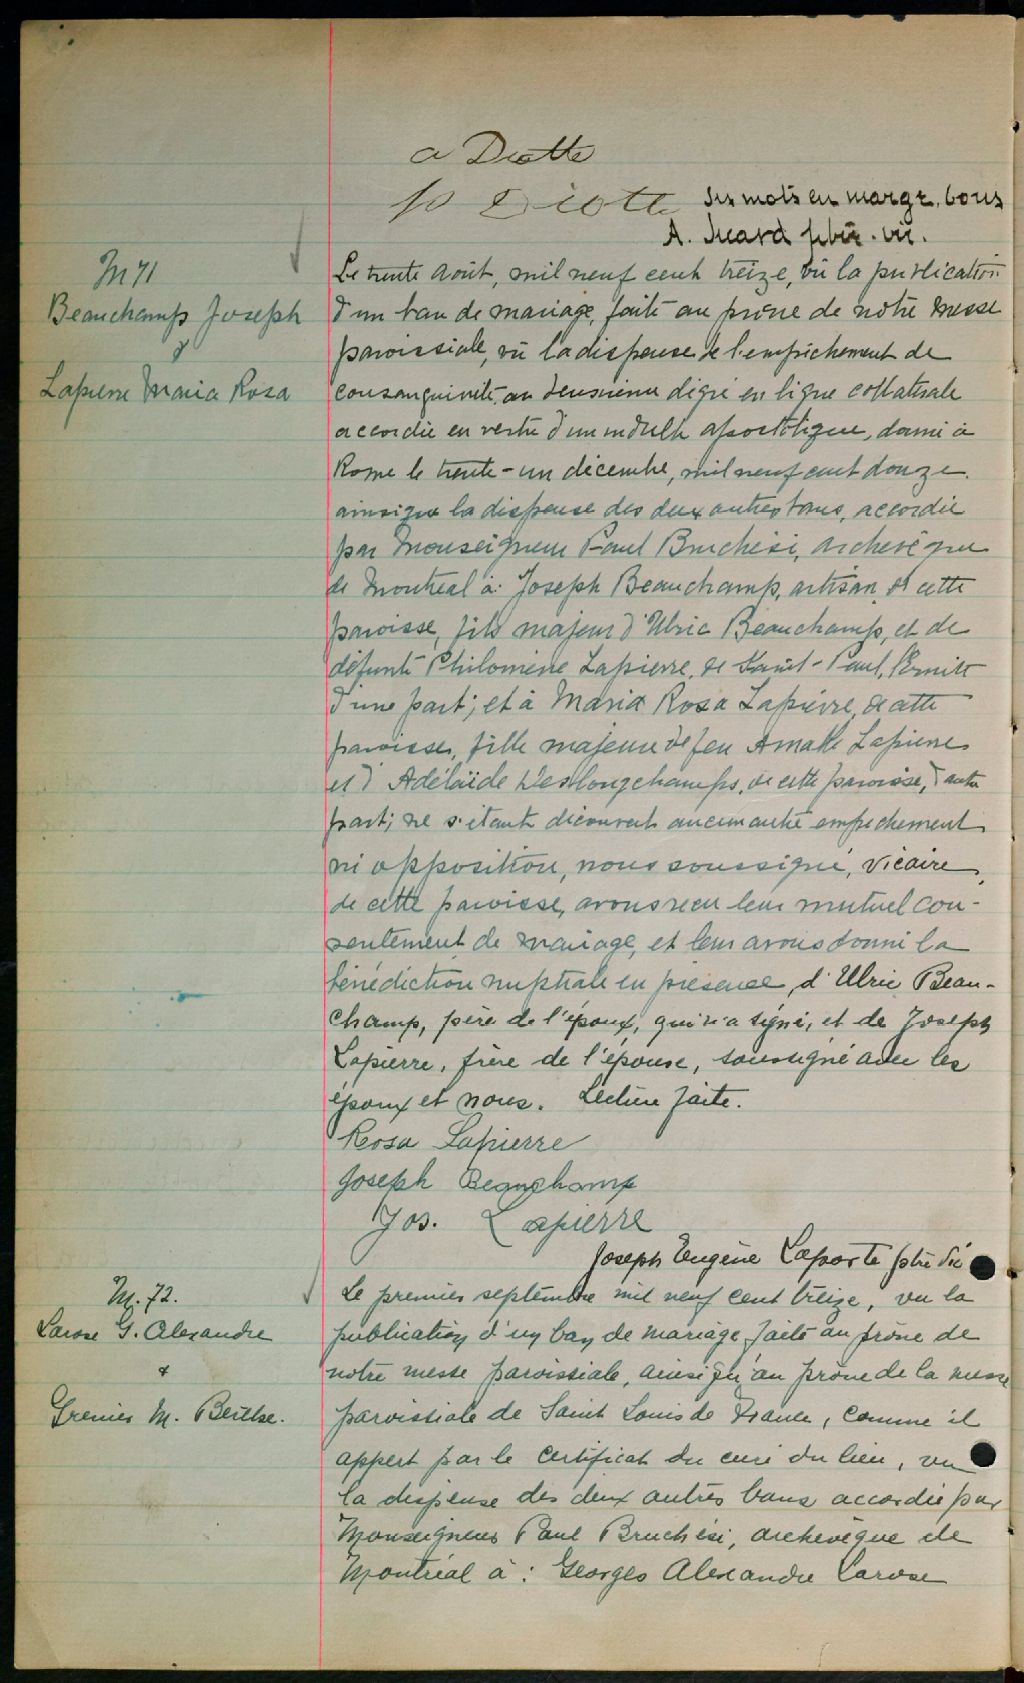 a Diotte
p Diotte
Six mots en marge, bons
A. Picard ptre. vic.
M 71
Beauchamp Joseph
&
Lapierre Maria Rosa
Le trente Août, mil neuf cent treize, vû la publication
d'un ban de mariage, faite au prône de notre messe
paroissiale, vû la dispense de l'empêchement de
consanguinité, au deuxième dégré en ligne collatérale
accordée en vertu d'un indult apostolique, donné à
Rome le trente-un décembre, mil neuf cent douze
ainsi que la dispense des deux autres bans, accordée
par Monseigneur Paul Bruchési, archevêque
de Montreal à: Joseph Beauchamp, artisan de cette
paroisse, fils majeur d'Ulric Beauchamp, et de
défunte Philomène Lapierre, de Saint-Paul, l'Ermite
d'une part; et à Maria Rosa Lapierre, de cette
paroisse, fille majeure de feu Amable Lapierre
et d'Adélaïde Deslongchamps, de cette paroisse, d'autre
part; ne s'étant découvert aucun autre empêchement
ni opposition, nous soussigné, vicaire,
de cette paroisse, avons reçu leur mutuel con-
sentement de mariage, et leur avons donné la
bénédiction nuptiale en présence, d'Ulric Beau-
champ, père de l'époux, qui n'a signé, et de Joseph
Lapierre, frère de l'épouse, soussigné avec les
époux et nous. Lecture faite.
Rosa Lapierre
Joseph Beauchamp
Jos. Lapierre
Joseph Eugène Laporte ptre vic
M. 72.
Larose G. Alexandre
&
Grenier M. Berthe.
Le premier septembre mil neuf cent treize, vu la
publication d'un ban de mariage faite au prône de
notre messe paroissiale, ainsi qu'au prône de la messe
paroissiale de Saint Louis de France, comme il
appert par le certificat du curé du lieu, vu
la dispense des deux autres bans accordée par
Monseigneur Paul Bruchési, archevêque de
Montréal à: Georges Alexandre Larose